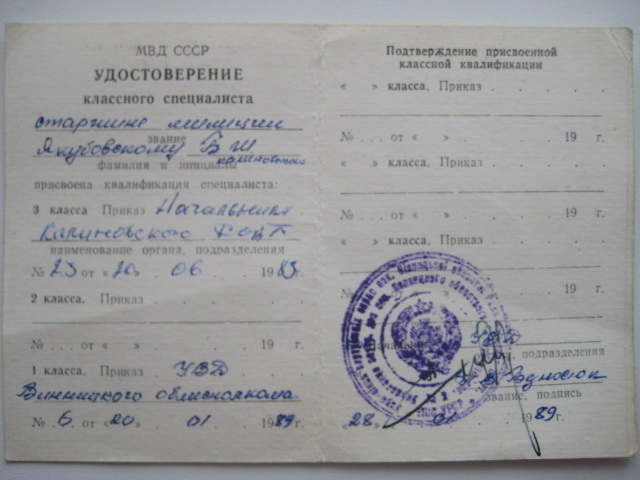 МВД СССР
УДОСТОВЕРЕНИЕ
классного специалиста
старшине милиции
звание
Якубовскому Б
фамилия и инициалы
присвоена квалификация специалиста:
3 класса Приказ Начальника
Калиновского
наименование органа, подразделения
№ 23 от « 20 » 06 1983 г.
2 класса. Приказ
№ от « » 19 г.
1 класса. Приказ УВД
Винницкого облисполкома
№ 6 от « 20 » 01 1989 г.
Подтверждение присвоенной
классной квалификации
« » класса. Приказ
№ от « » 19 г.
« » класса. Приказ
№ от « » 19 г.
« » класса. Приказ
19 г.
подразделения
звание, подпись
« 28 1989 г.